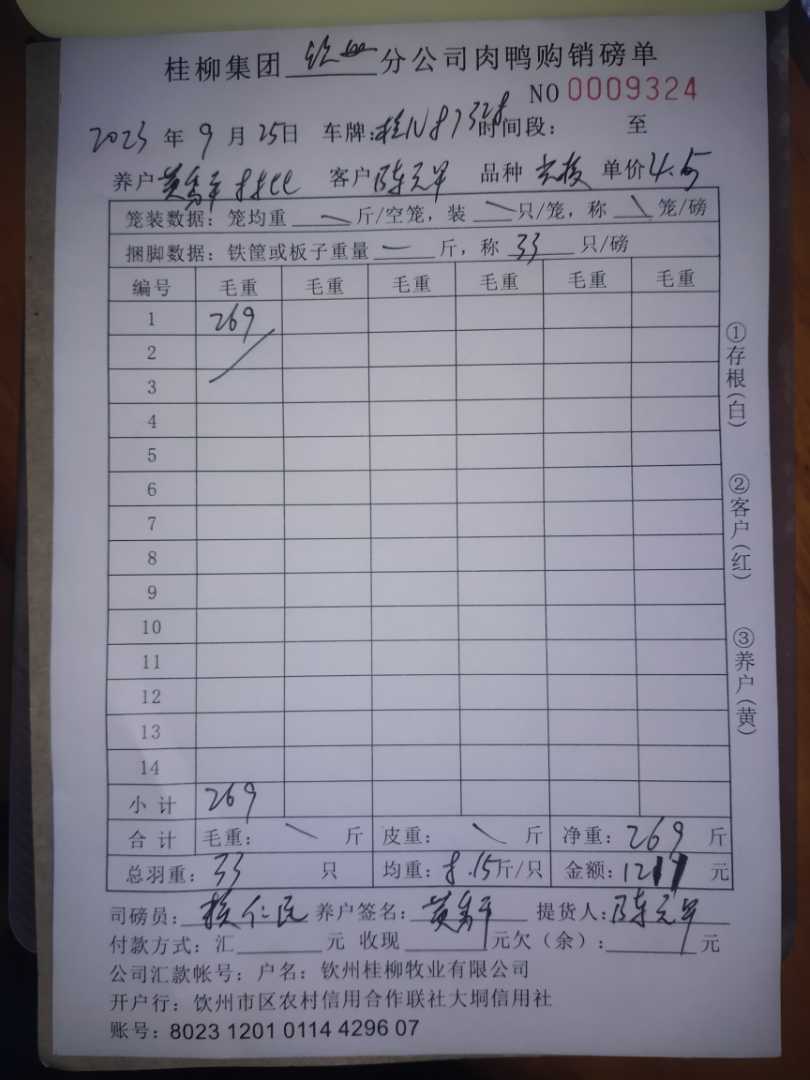 桂柳集团 钦州 分公司肉鸭购销磅单
NO 0009324
2023 年 9 月 25 日 车牌: 桂N 时间段: 至
养户 黄秀平 客户 陈元军 品种 单价 4.5
笼装数据: 笼均重 斤/空笼, 装 只/笼, 称 笼/磅
捆脚数据: 铁筐或板子重量 斤, 称 33 只/磅
编号 毛重 毛重 毛重 毛重 毛重 毛重
1 269
2
3
4
5
6
7
8
9
10
11
12
13
14
小计 269
合计 毛重: 斤 皮重: 斤 净重: 269 斤
总羽重: 33 只 均重: 8.15 斤/只 金额: 1211 元
司磅员: 仁民 养户签名: 黄秀平 提货人: 陈元军
付款方式: 汇 元 收现 元欠(余): 元
公司汇款帐号: 户名: 钦州桂柳牧业有限公司
开户行: 钦州市区农村信用合作联社大垌信用社
账号: 8023 1201 0114 4296 07
①存根(白)
②客户(红)
③养户(黄)